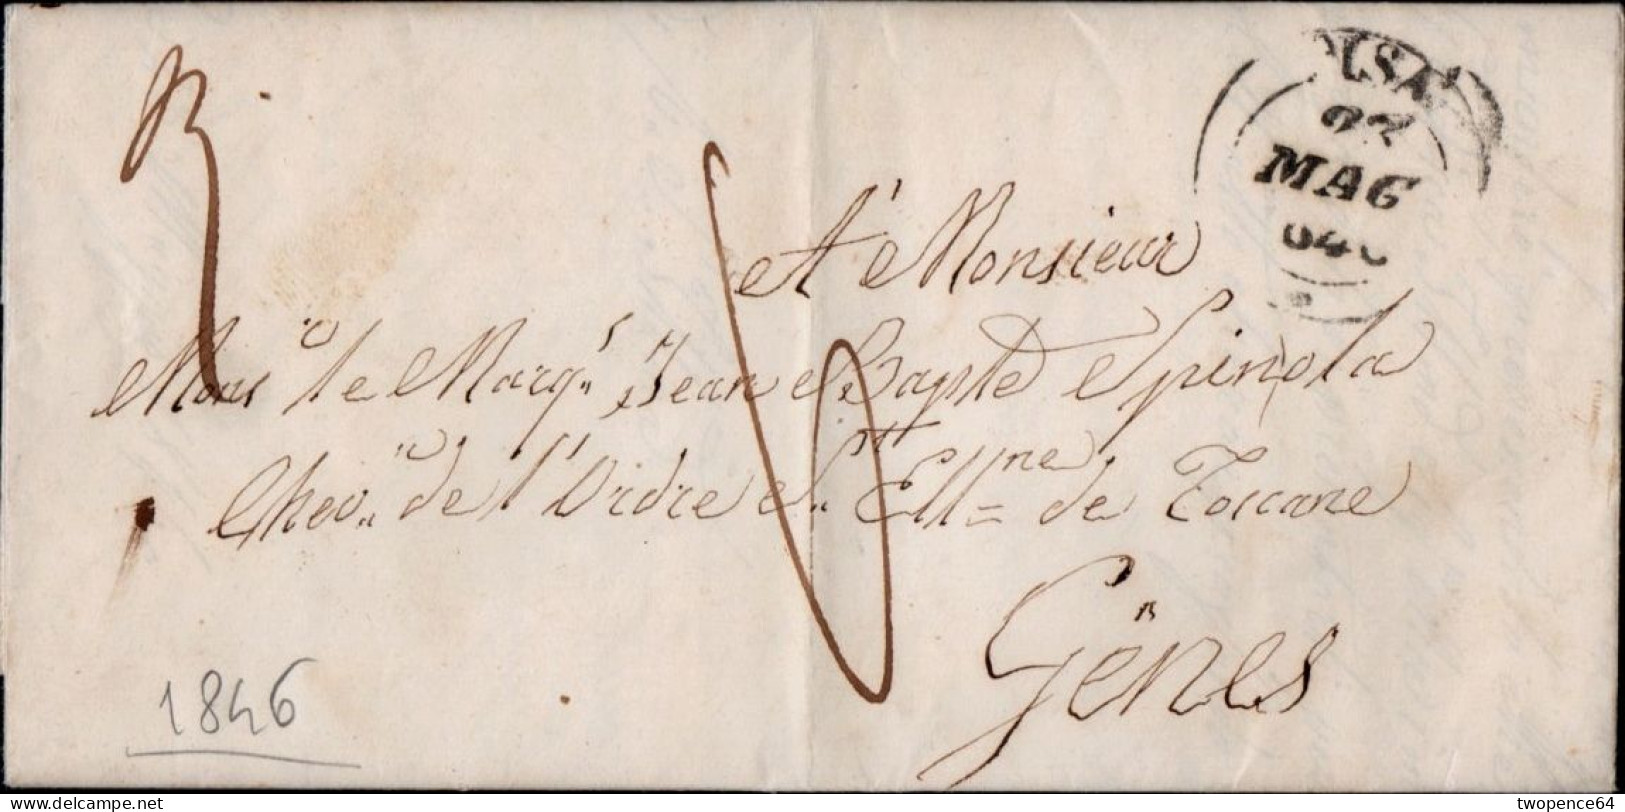 PISA
27
MAG
846
3
6
A Monsieur
Mons.r le Marq.s Jean Bapte Spinola
Chev.r de l'Ordre St Etnne de Toscane
Gênes
1846
twopence64